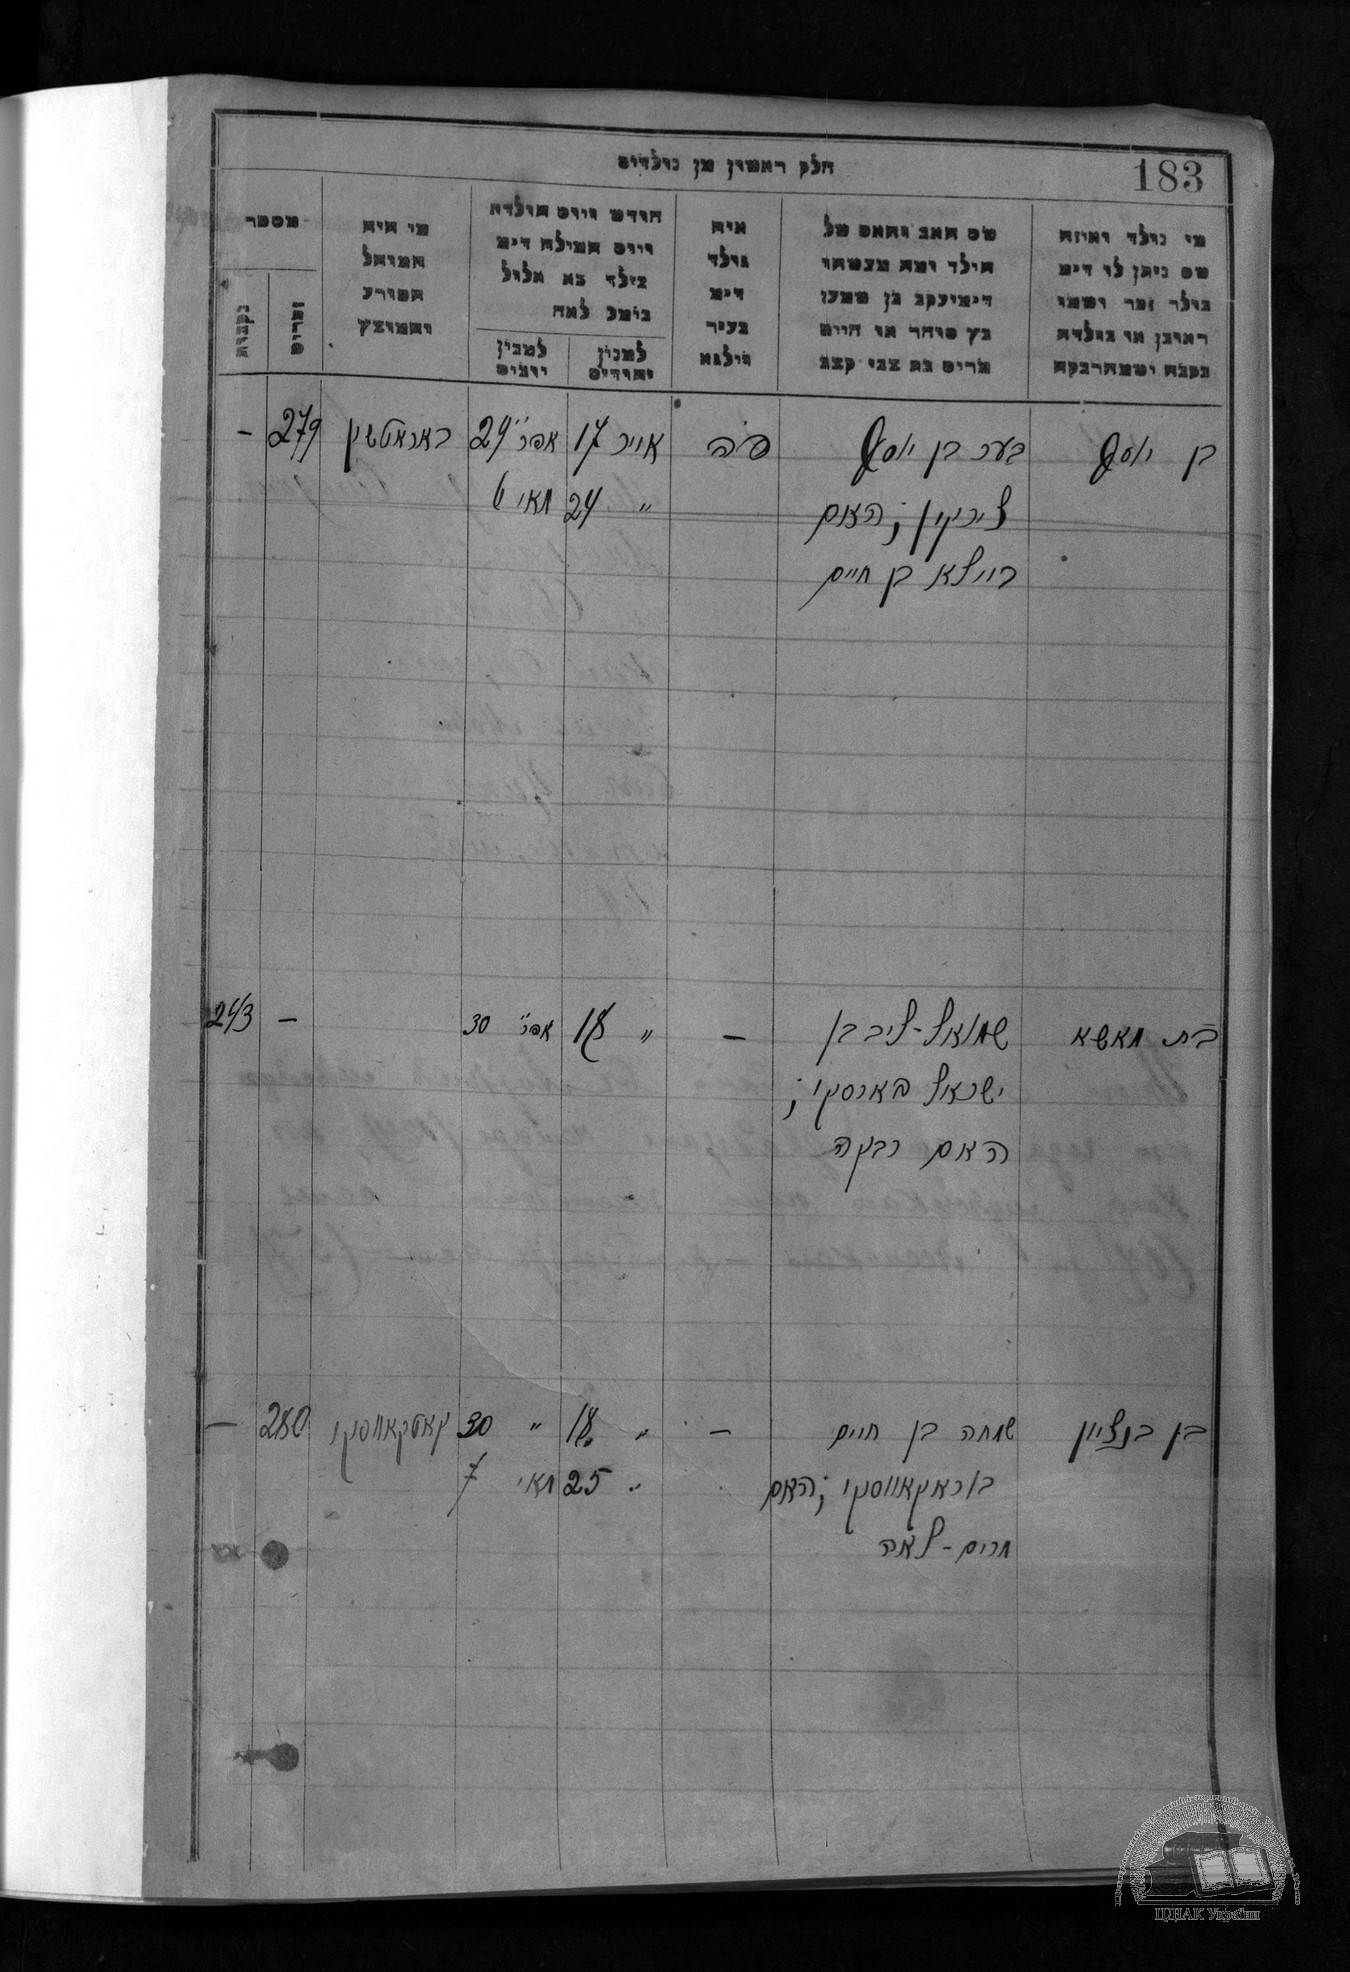 183
חלק ראשון מן נולדים
מי נולד ואיזה
שם ניתן לו דימ
נולד זכר ושמו
ראובן או נולדה
נקבה ושמה רבקה
שם האב והאם של
הילד ומה מעשהו
דימ יעקב בן שמעון
כץ סוחר או חייט
מרים בת צבי קצב
איה
נולד
דימ
בעיר
ווילנא
חודש ויום תולדה
ויום המילה דימ
נולד בא אלול
נימול לאה
למנין
יהודים
למנין
יונים
מי היה
המוהל
הפורע
והמוצץ
מספר
זכרים
נקבות
בן יוסף
בער בן יוסף
צירקין ; האם
ביילא בן חיים
פה
אייר 17
" 24
אפר' 29
מאי 6
279
–
בת מאשא
שמואל-ליב בן
ישראל
האם רבקה
–
" 18
אפר' 30
–
243
בן בנציון
שמחה בן חיים
בוראקאווסקי ; האם
מרים-לאה
–
" 18
" 25
" 30
מאי 7
280
–
ЦДІАК України